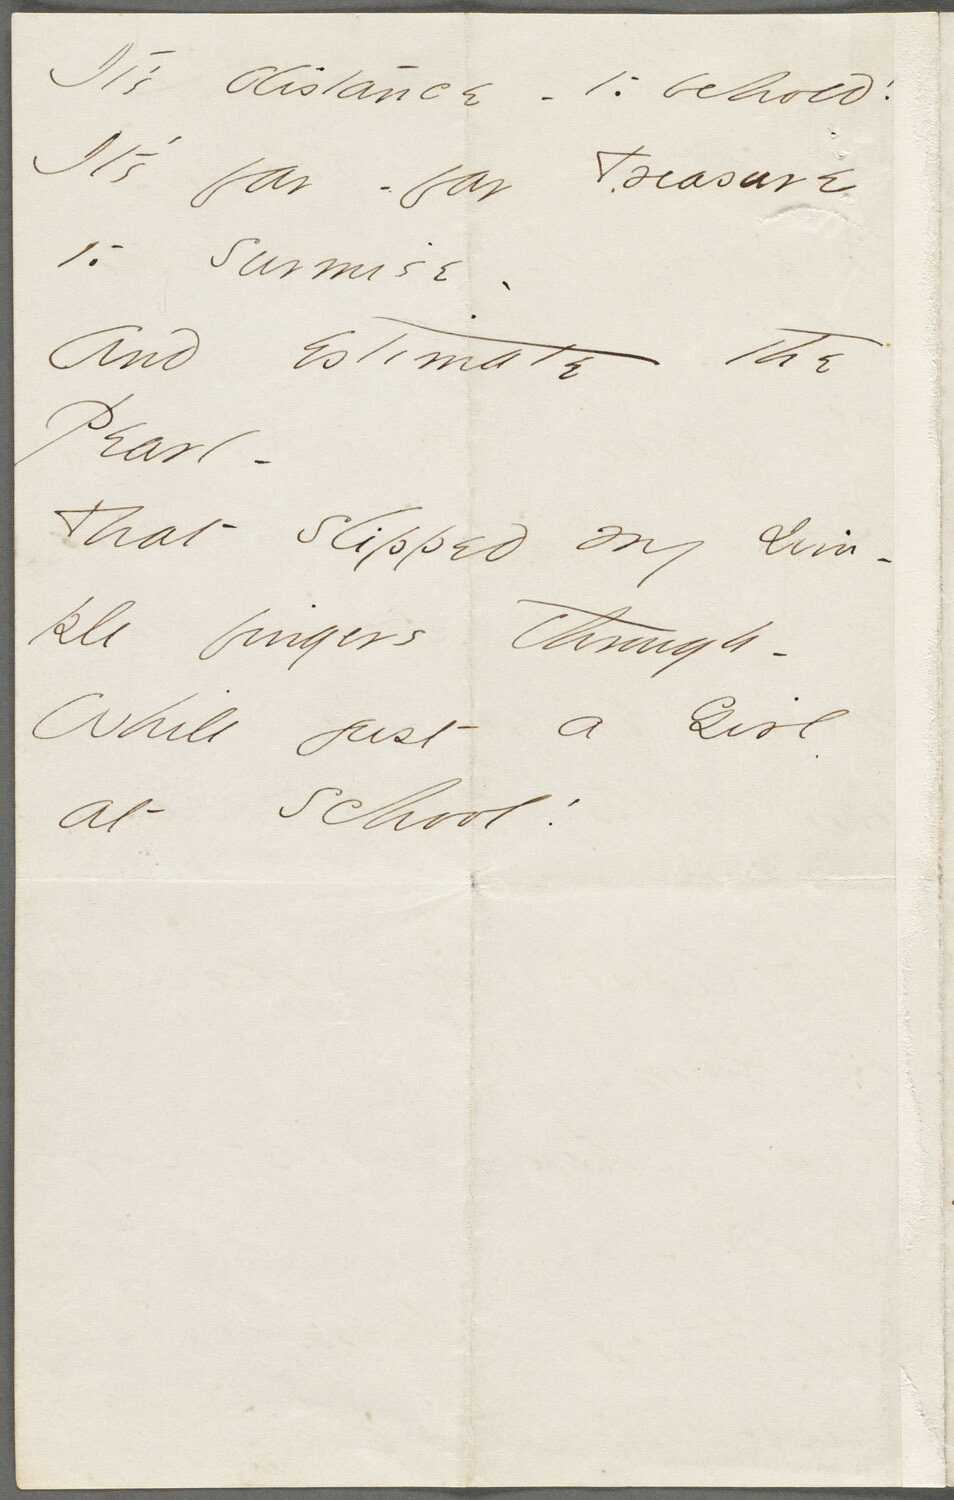 It's distance - to behold!
It's far - far Treasure
to surmise.
And estimate the
Pearl -
That slipped my sim-
ple fingers through -
While just a Girl
at School!